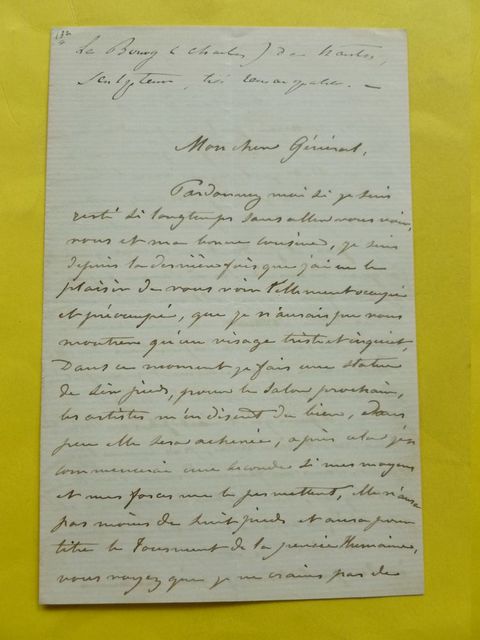 Le Bourg (Charles) de Nantes,
Sculpteur, très remarquable. —
Mon cher Général,
Pardonnez moi si je suis
resté si longtemps sans aller vous voir,
vous et ma bonne cousine, je suis
depuis la dernière fois que j'ai eu le
plaisir de vous voir tellement occupé
et préoccupé, que je n'aurais pu vous
montrer qu'un visage triste et inquiet,
Dans ce moment je fais une statue
de six pieds, pour le Salon prochain,
les artistes m'en disent du bien, dans
peu elle sera achevée, après cela j'en
commencerai une seconde si mes moyens
et mes forces me le permettent, Elle n'aura
pas moins de huit pieds et aura pour
titre le Tourment de la pensée Humaine,
vous voyez que je ne crains pas de